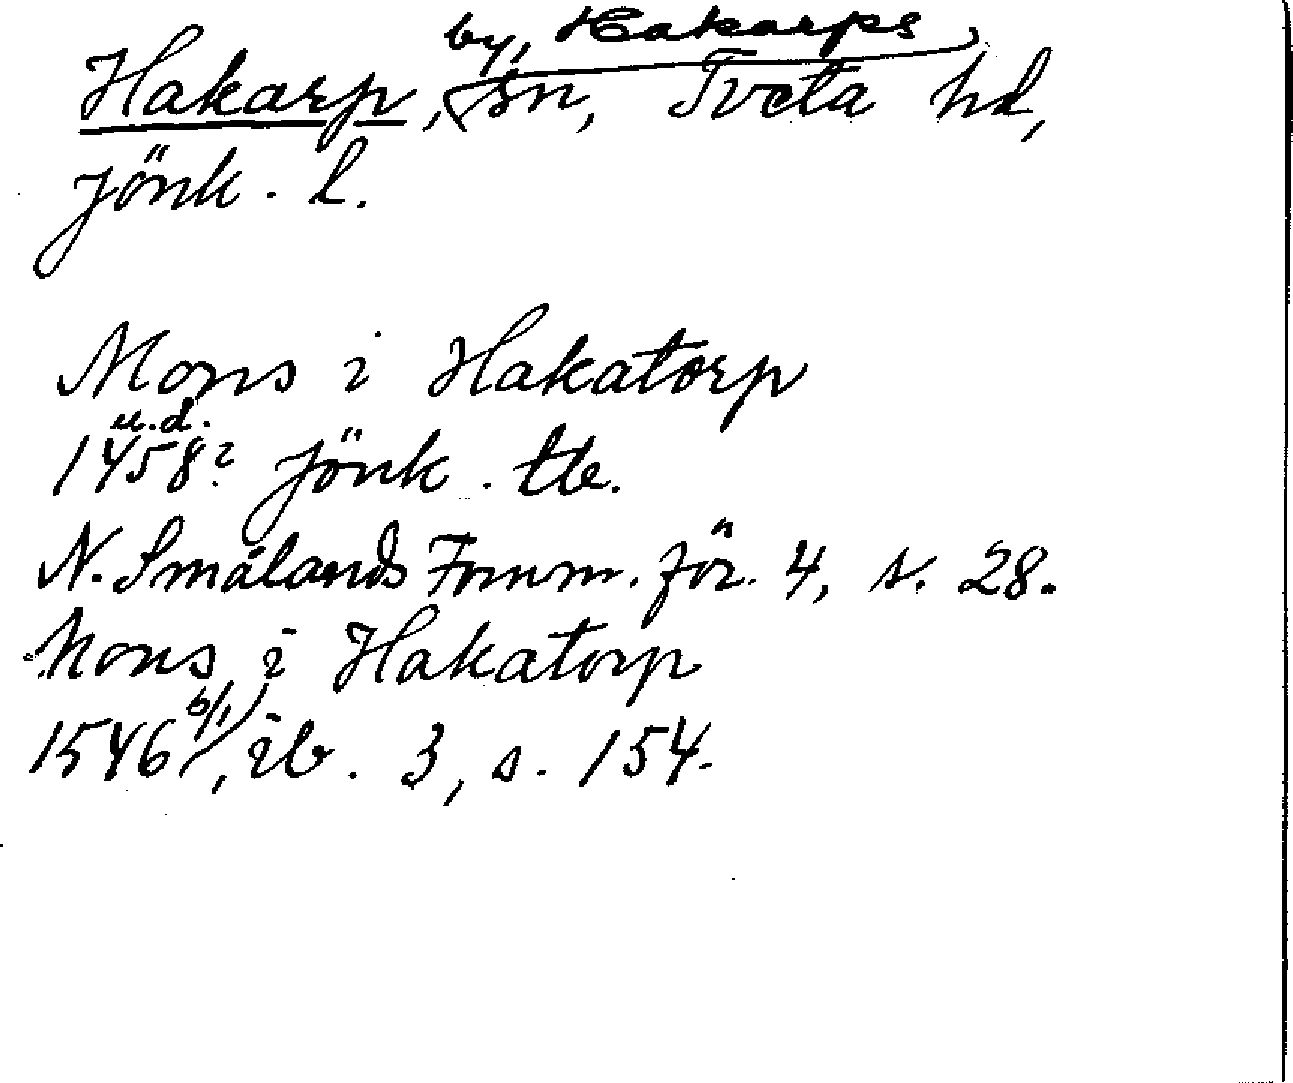 by, Hakarps
Hakarp, sn, Tveta hd,
Jönk. l.
Mons i Hakatorp
u.d.
1458? Jönk. tb.
N. Smålands Fornm. för. 4, s. 28.
Mons i Hakatorp
1546 6/1, ib. 3, s. 154.